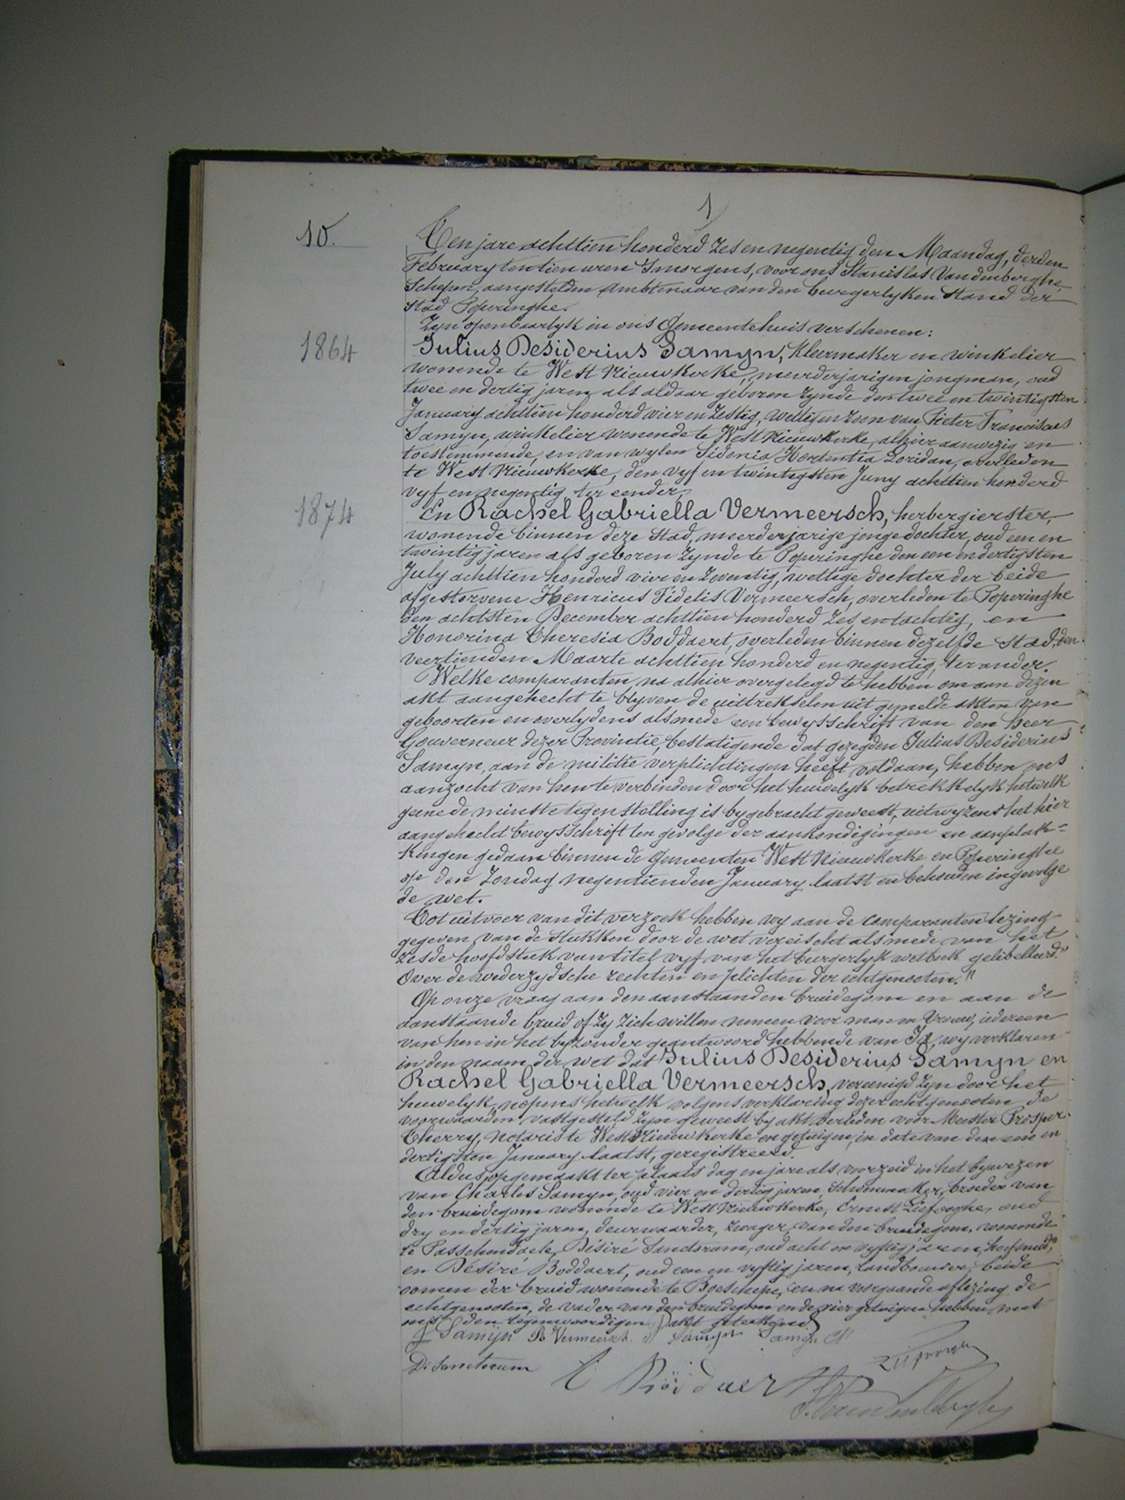 1
10.
Ten jare achttien honderd zes en negentig den Maandag, derden
February ten tien uren 's morgens, voor ons Stanislas Vandenberghe,
Schepen, aangestelden Ambtenaar van den burgerlyken Stand der
Stad Poperinghe.
Zyn openbaarlyk in ons Gemeentehuis verschenen:
1864
Julius Desiderius Samyn, kleermaker en winkelier
wonende te West Nieuwkerke, meerderjarigen jongman, oud
twee en dertig jaren, als aldaar geboren zynde den twee en twintigsten
January achttien honderd vier en zestig, wettigen zoon van Pieter Franciscus
Samyn, winkelier wonende te West Nieuwkerke, alhier aanwezig en
toestemmende, en van wylen Sidonia Hortentia Loridan, overleden
te West Nieuwkerke, den vyf en twintigsten Juny achttien honderd
vyf en negentig ter eender,
1874
En Rachel Gabriella Vermeersch, herbergierster,
wonende binnen deze Stad, meerderjarige jonge dochter, oud een en
twintig jaren als geboren zynde te Poperinghe den een en dertigsten
July achttien honderd vier en zeventig, wettige dochter der beide
afgestorvene Henricus Fidelis Vermeersch, overleden te Poperinghe
den achtsten December achttien honderd zes en tachtig, en
Honorina Theresia Boddaert, overleden binnen dezelfde Stad, den
veertienden Maarte achttien honderd en negentig, ter ander.
Welke comparanten, na alhier overgelegd te hebben om aan dezen
akt aangehecht te blyven de uittrekselen uit gemelde akten van
geboorten en overlydens alsmede een bewysschrift van den Heer
Gouverneur dezer Provincie, bestatigende dat gezegden Julius Desiderius
Samyn, aan de militie verplichtingen heeft voldaan, hebben ons
aanzocht van hen te verbinden door het huwelyk betrekkelyk hetwelk
geene de minste tegenstelling is bygebracht geweest, uitwyzens het hier
aangehecht bewysschrift ten gevolge der aankondigingen en aanplak-
kingen gedaan binnen de Gemeenten West Nieuwkerke en Poperinghe
op den Zondag negentienden January laatst en behouden ingevolge
de wet.
Tot uitvoer van dit verzoek hebben wy aan de comparanten lezing
gegeven van de stukken door de wet vereischt alsmede van het
zesde hoofdstuk van titel vyf van het burgerlyk wetboek getitelleerd "
Over de wederzydsche rechten en plichten der echtgenooten."
Op onze vraag aan den aanstaanden bruidegom en aan de
aanstaande bruid of zy zich willen nemen voor man en vrouw, iedereen
van hen in het byzonder geantwoord hebbende van Ja, wy verklaren
in den naam der wet dat Julius Desiderius Samyn en
Rachel Gabriella Vermeersch, vereenigd zyn door het
huwelyk, nopens hetwelk volgens verklaring dezer echtgenooten de
voorwaarden vastgesteld zyn geweest by akt verleden voor Meester Prosper
Therry, notaris te West Nieuwkerke en getuigen, in date van den een en
dertigsten January laatst, geregistreerd.
Aldus opgemaakt ter plaats dag en jare als voorzeid in het bywezen
van Charles Samyn, oud vier en dertig jaren, schoenmaker, broeder van
den bruidegom wonende te West Nieuwkerke, Ernest Liefooghe, oud
dry en dertig jaren, deurwaarder, zwager van den bruidegom, wonende
te Passchendaele, Désiré Sanctorum, oud acht en vyftig jaren, hoefsmid,
en Désiré Boddaert, oud een en vyftig jaren, landbouwer, beide
oomen der bruid wonende te Boeschepe, en na voorgaande aflezing de
echtgenooten, de vader van den bruidegom en de vier getuigen hebben met
ons den tegenwoordigen akt geteekend
J Samijn R Vermeersch Samyn Samyn Ch
D. Sanctorum
D Boddaert
S. Vandenberghe